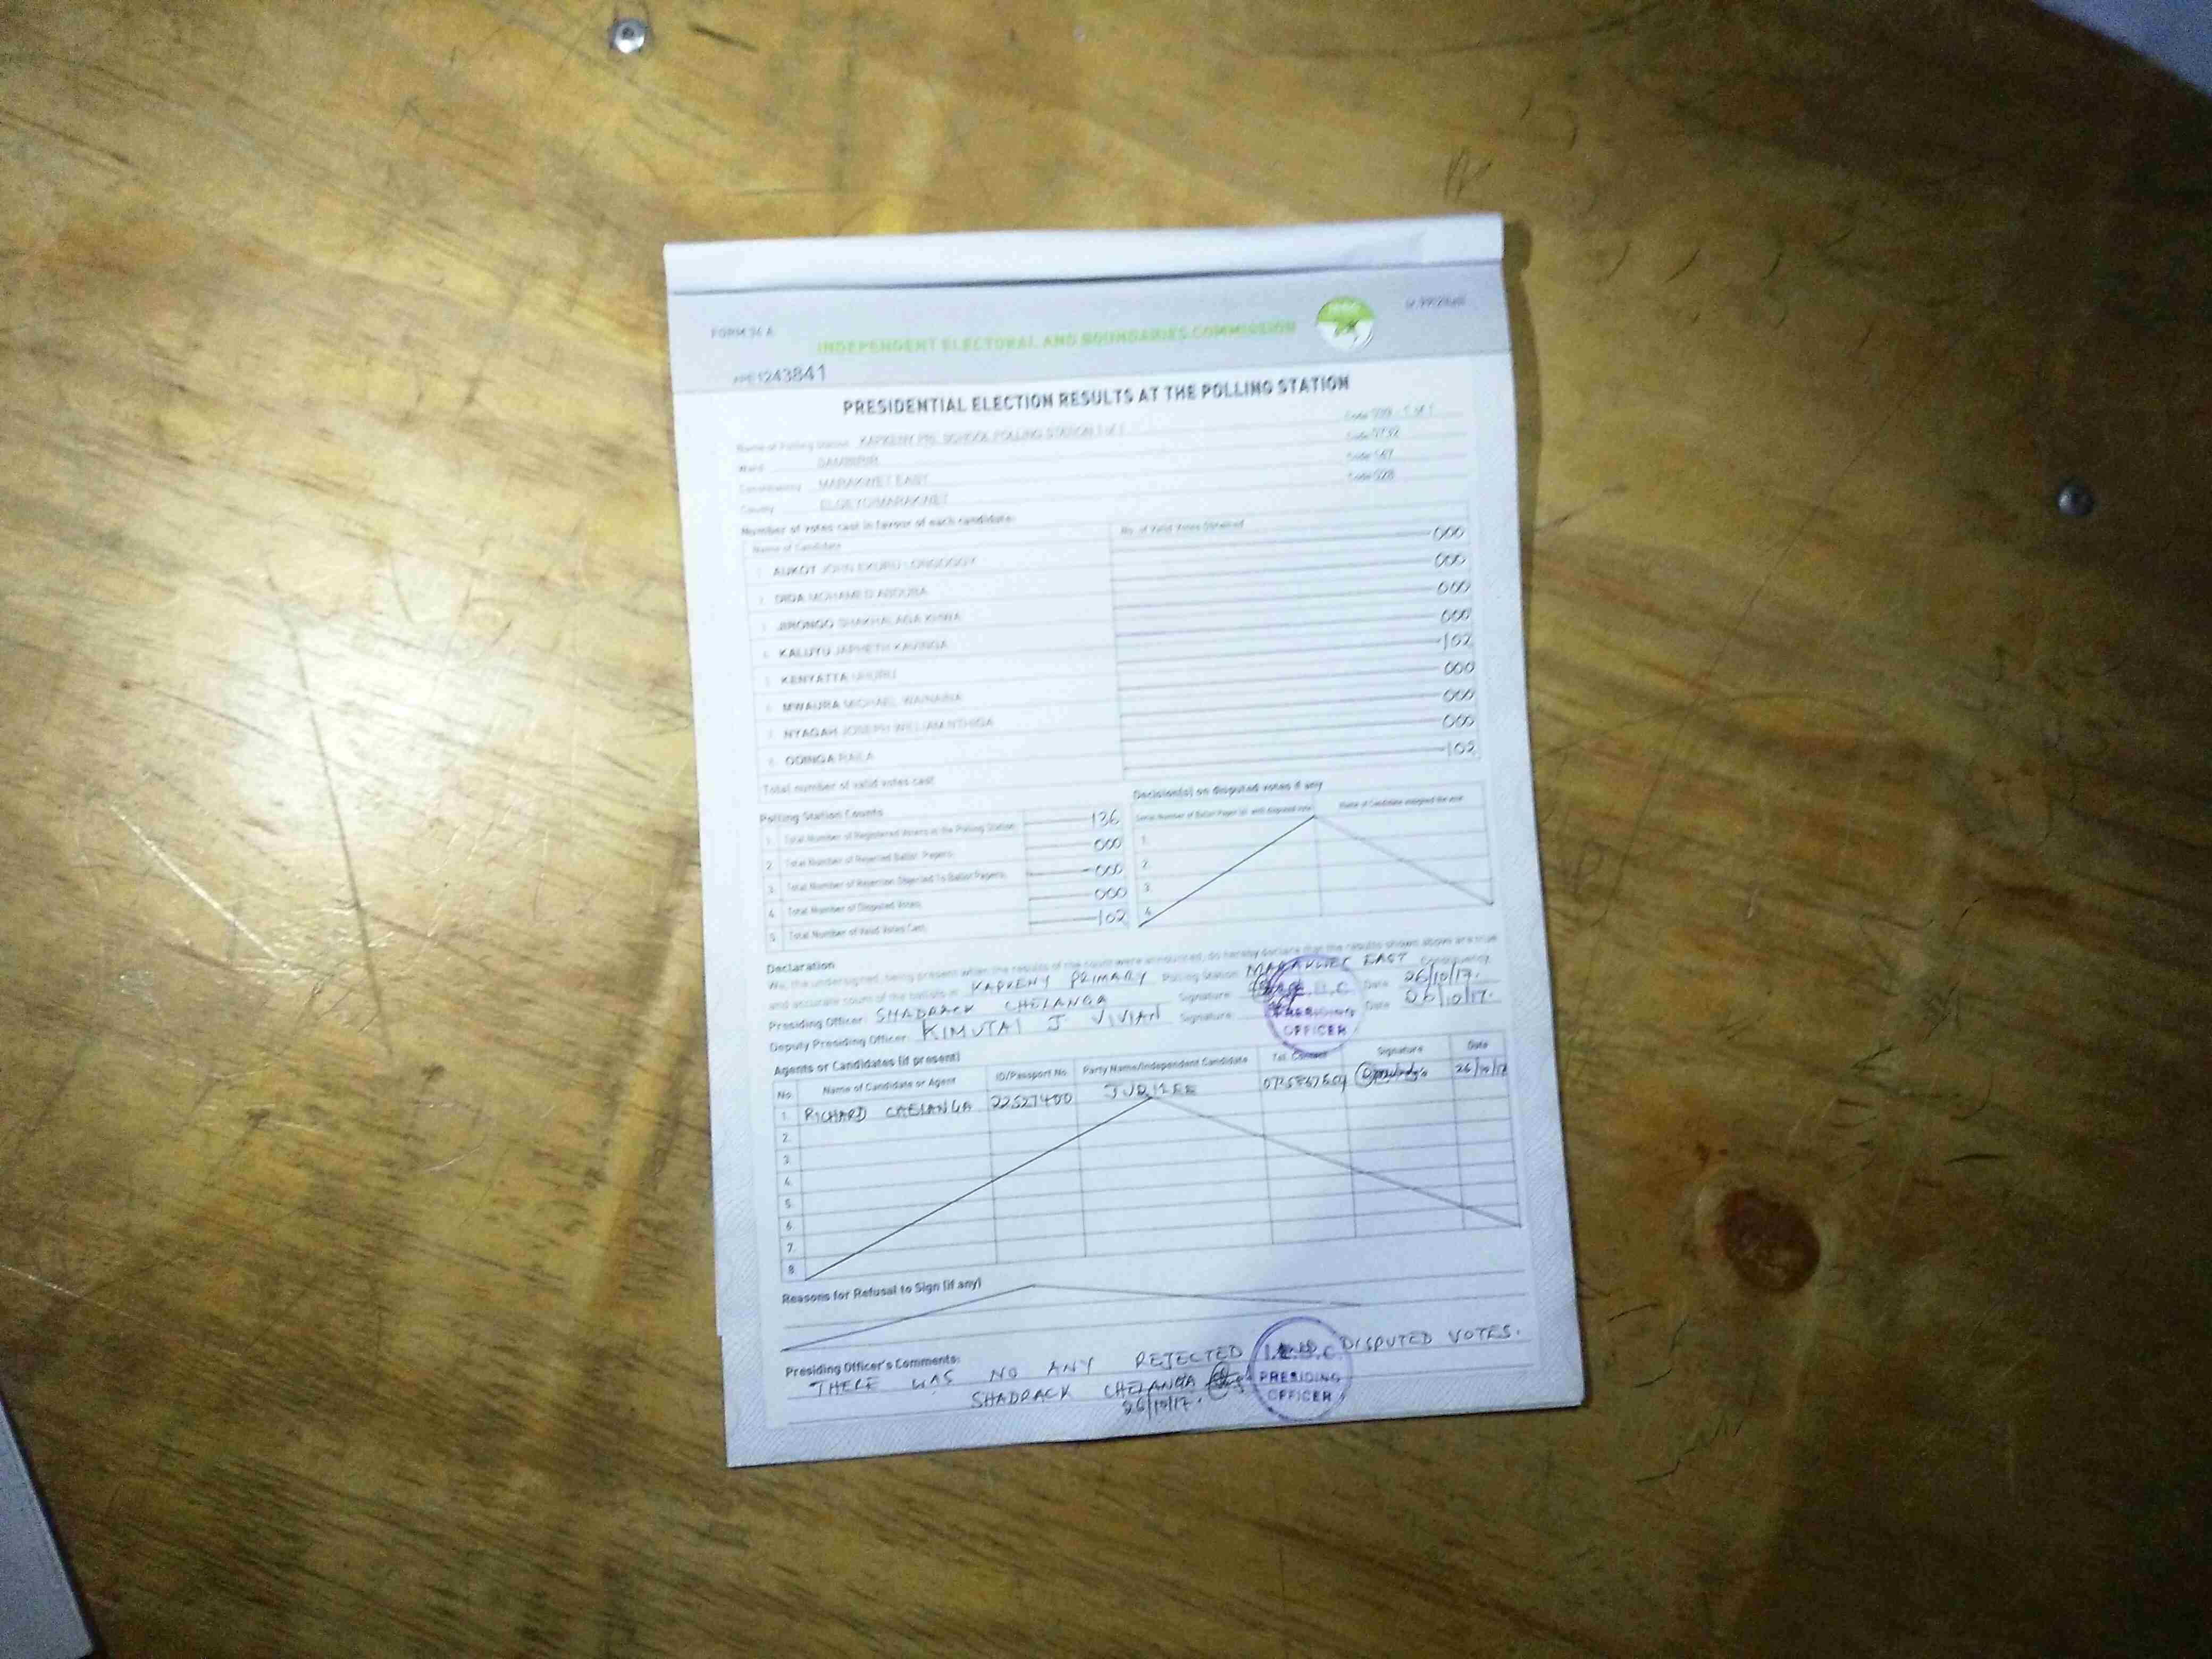 FORM 34 A
INDEPENDENT ELECTORAL AND BOUNDARIES COMMISSION
1243841
PRESIDENTIAL ELECTION RESULTS AT THE POLLING STATION
Name of Polling Station KAPKENY PRI. SCHOOL POLLING STATION 1 of 1 Code 1 of 1
Ward Code 0732
Constituency MARAKWET EAST Code 147
County ELGEYO/MARAKWET Code 028
Number of votes cast in favour of each candidate:
Name of Candidate No. of Valid Votes Obtained
1. AUKOT JOHN EKURU LONGOGGY 000
2. DIDA MOHAMED ABDUBA 000
3. JIRONGO SHAKHALAGA KHWA 000
4. KALUYU JAPHETH KAVINGA 000
5. KENYATTA UHURU 102
6. MWAURA MICHAEL WAINAINA 000
7. NYAGAH JOSEPH WILLIAM NTHIGA 000
8. ODINGA RAILA 000
Total number of valid votes cast 102
Polling Station Counts
1. Total Number of Registered Voters in the Polling Station 136
2. Total Number of Rejected Ballot Papers 000
3. Total Number of Rejection Objected To Ballot Papers 000
4. Total Number of Disputed Votes 000
5. Total Number of Valid Votes Cast 102
Decision(s) on disputed votes if any
Serial Number of Ballot Paper (s) with disputed vote Name of Candidate assigned the vote
1.
2.
3.
4.
Declaration
We, the undersigned, being present when the results of the count were announced, do hereby declare that the results shown above are true
and accurate count of the ballots in KAPKENY PRIMARY Polling Station MARAKWET EAST Constituency
Presiding Officer: SHADRACK CHELANGA Signature: Date 26/10/17.
Deputy Presiding Officer: KIMUTAI J VIVIAN Signature: Date 06/10/17.
I.E.B.C
PRESIDING
OFFICER
Agents or Candidates (if present)
No. Name of Candidate or Agent ID/Passport No. Party Name/Independent Candidate Tel. Contact Signature Date
1. RICHARD CHELANGA 22527400 JUBILEE 26/10/17
2.
3.
4.
5.
6.
7.
8.
Reasons for Refusal to Sign (if any)
Presiding Officer's Comments:
THERE WAS NO ANY REJECTED AND DISPUTED VOTES.
SHADRACK CHELANGA
26/10/17.
I.E.B.C
PRESIDING
OFFICER